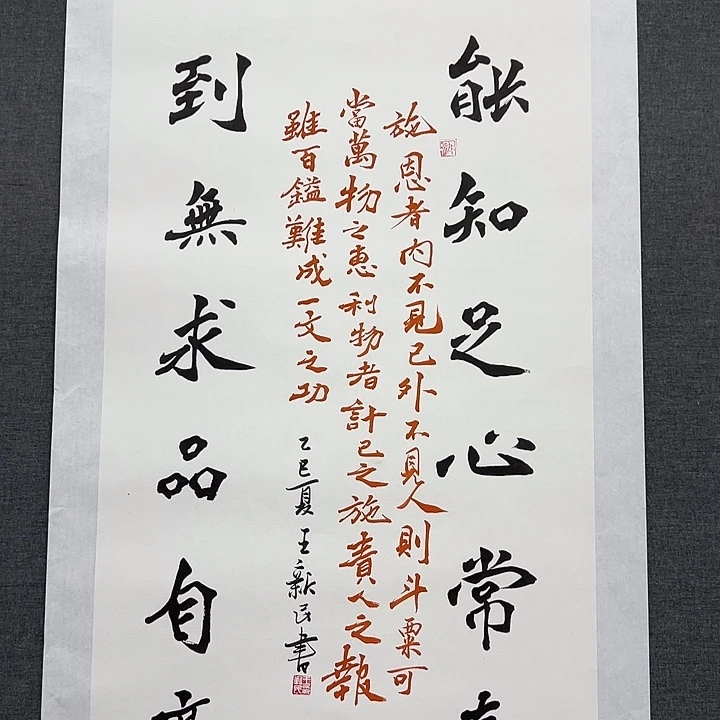 能知足心常
施恩者内不見己外不見人則斗粟可
當萬物之惠利物者計己之施責人之報
雖百鎰難成一文之功
乙巳夏王新民書
到無求品自